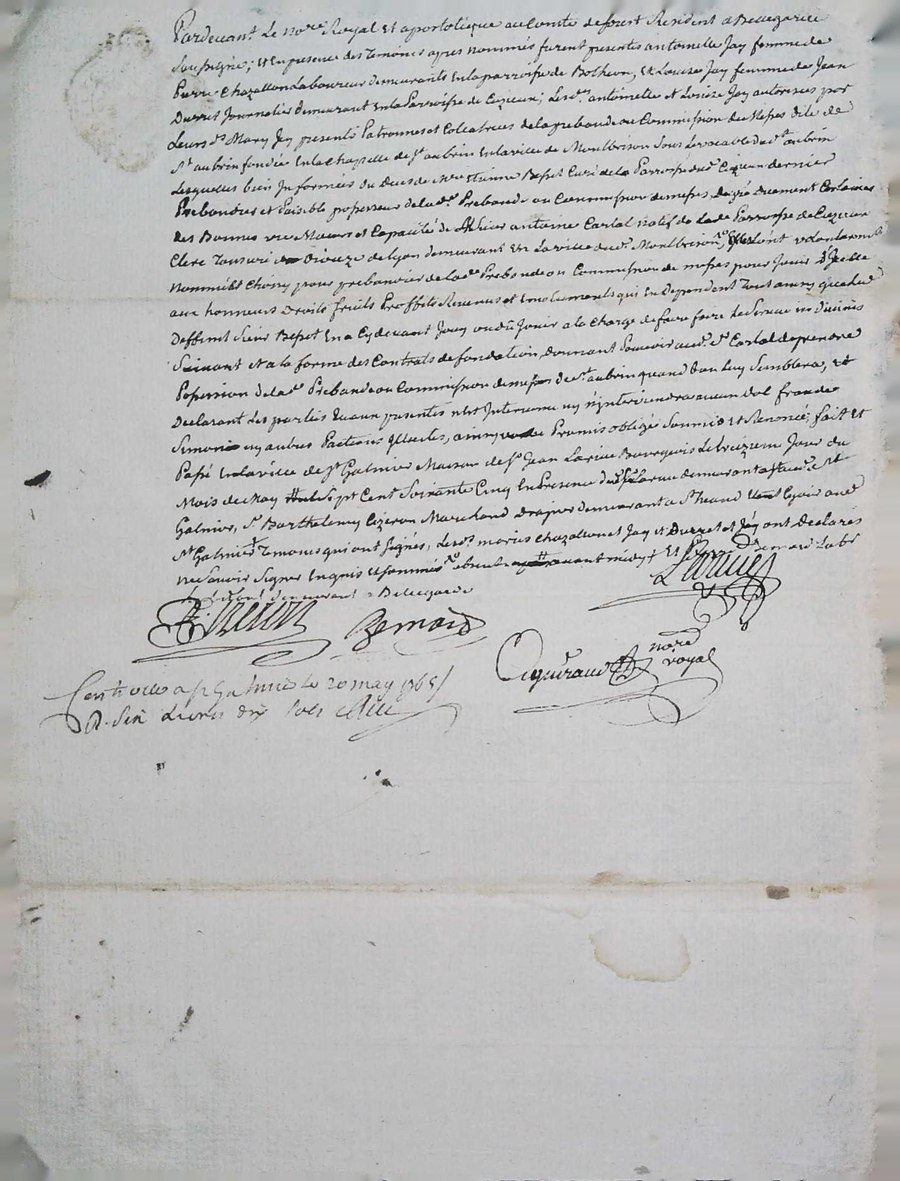 Pardevant Le no.re Royal Et apostolique au Comté de forest Resident a Bellegarde
Soussigné; Et en presence des Temoins apres nommés furent presentes antoinette Jay femme de
Pierre Chazallon Laboureur demeurants En la parroisse de Botheon, Et Louise Jay femme de Jean
Durret Journalier demeurant En la Parroisse de Cuzieu; Lesd.s antoinette et Louise Jay autorisées par
Leurs d.s Marys Icy presents Patronnes et Colatrices de la prebande ou Commission de Messes dite de
St aubrin fondée En la Chapelle de St aubrin En la ville de Montbrison Sous Le vocable de St aubrin
Lesquelles bien Informées du deces de Mre Bepet Curé de la Parroisse de Cuzieu dernier
Prebandier et Paisible possesseur de lad.e Prebande ou Commission de messes, deuement Certaines
des Bonnes vie Mœurs et Capacité de antoine Carlat natif de lad. Parroisse de Cuzieu
Clerc Tonsuré Dioceze de Lyon demeurant En La ville de Montbrison, Elles ont volontairem.t
nommé Et Choisy pour prebandier de lad.e Prebande ou Commission de messes pour Jouir D'Icelle
aux honneurs Droits fruits Proffits Revenus et Emoluments qui En Dependent Tout ainsy que led
Deffunt Sieur Bepet En a Cydevant Jouy ou dû Jouir a la charge de faire faire Le Service divin
Suivant Et a la forme des Contrats de fondation, donnant Pouvoir aud. Sr Carlat de prendre
Possession de lad.e Prebande ou Commission de messes de St aubrin quand bon Luy Semblera, Et
Declarant Les parties qu'aux presentes n'Est Intervenu ny n'Interviendra aucun dol fraude
Simonie ny autres Pactions Illicites, ainsy Promis obligé Soumis et Renoncé; fait Et
Passé En la ville de St Galmier Maison de Sr Jean Larue Bourgeois Le treizieme Jour du
Mois de May Mil Sept Cent Soixante Cinq En Presence dud. Sr Larue demeurant aud. St
Galmier, Sr Barthelemy Cizeron Marchand Drapier demeurant a St heand
St Galmier Temoins qui ont Signés, Lesd. mariés Chazallon et Jay Et Durret et Jay ont declarés
ne Savoir Signer Enquis Et Sommés avant midy Et Bernard
demeurant a Bellegarde
Larue
Cizeron Bernard
no.re
royal
Controllé a St Galmier Le 20 may 1765
R. Six Livres dix Sols